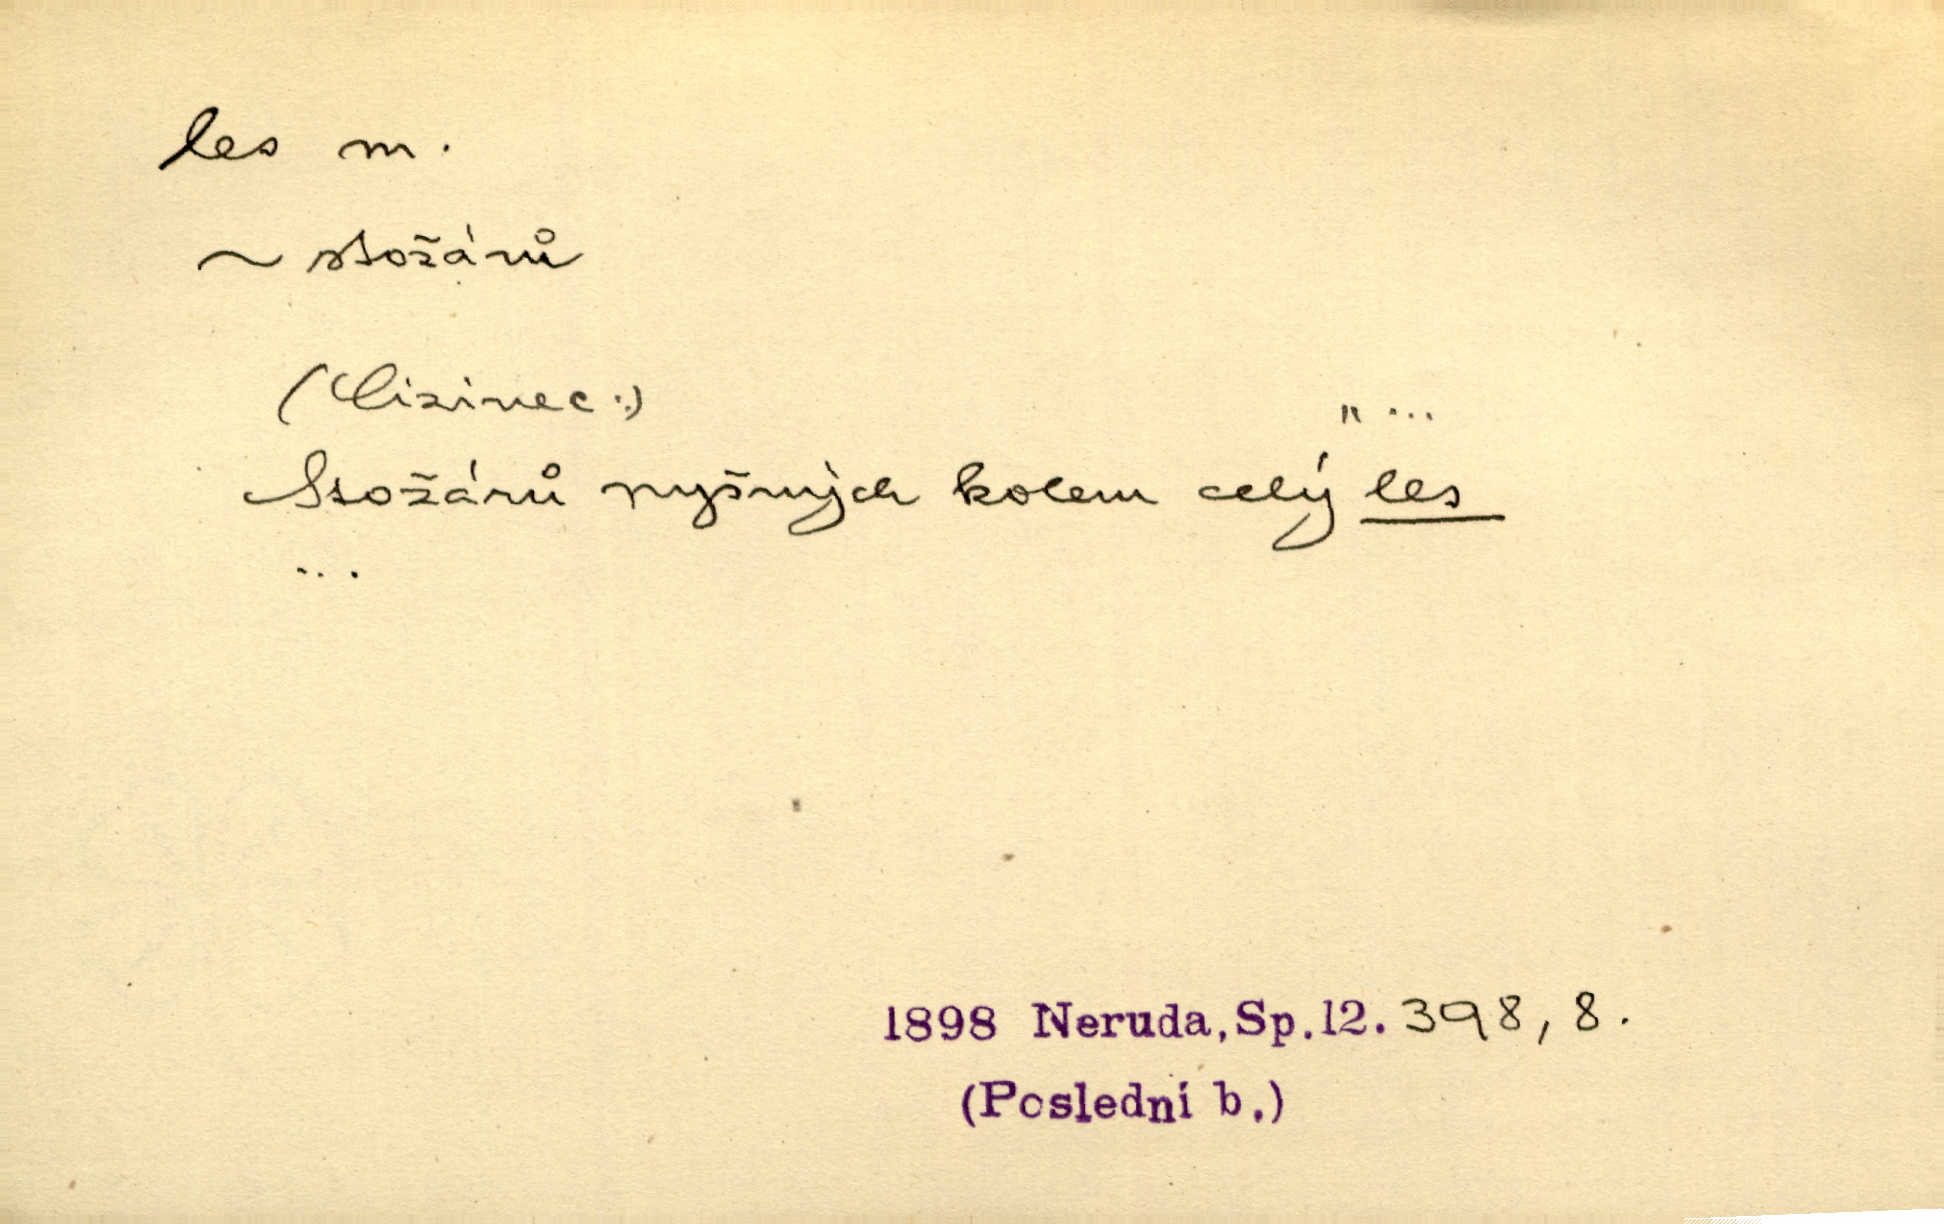 les m.
~ stožárů
(Cizinec:) „ ...
Stožárů pyšných kolem celý les
...
1898 Neruda, Sp. 12. 398, 8.
(Poslední b.)